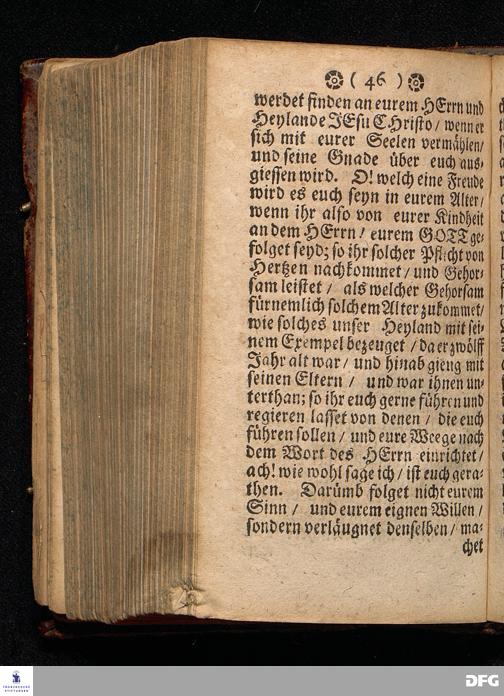 ( 46 )
werdet finden an eurem HErrn und
Heylande JEsu CHristo / wenn er
sich mit eurer Seelen vermählen /
und seine Gnade über euch aus-
giessen wird. O! welch eine Freude
wird es euch seyn in eurem Alter /
wenn ihr also von eurer Kindheit
an dem HErrn / eurem GOTT ge-
folget seyd; so ihr solcher Pflicht von
Hertzen nachkommet / und Gehor-
sam leistet / als welcher Gehorsam
fürnemlich solchem Alter zukommet /
wie solches unser Heyland mit sei-
nem Exempel bezeuget / da er zwölff
Jahr alt war / und hinab gieng mit
seinen Eltern / und war ihnen un-
terthan; so ihr euch gerne führen und
regieren lasset von denen / die euch
führen sollen / und eure Weege nach
dem Wort des HErrn einrichtet /
ach! wie wohl sage ich / ist euch gera-
then. Darümb folget nicht eurem
Sinn / und eurem eignen Willen /
sondern verläugnet denselben / ma-
chet
FRANCKESCHE
STIFTUNGEN
DFG